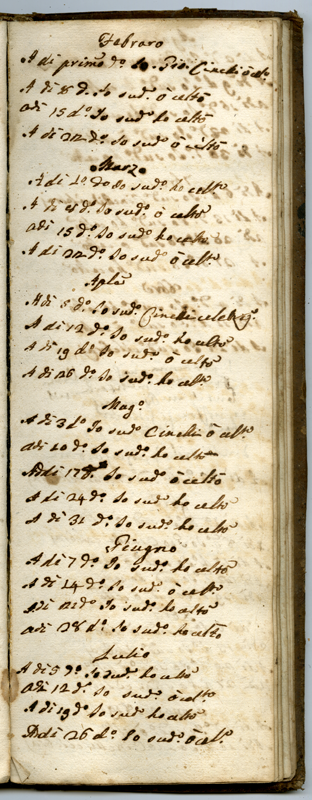 Febraro
A di primo d.o Io Gio: Cinelli ò celto
A di 8 d.o Io sud.o ò celto
adi 15 d.o Io sud.o ho celto
A di 22 d.o Io sud.o ò celto
Marzo
A di p.o d.o Io sud.o ho celto
A di 8 d.o Io sud.o ò celto
adi 15 d.o Io sud.o ho celto
A di 22 d.o Io sud.o ò celto
Aple
A di 5 d.o Io sud.o Cinelli
A di 12 d.o Io sud.o ho celto
A di 19 d.o Io sud.o ò celto
A di 26 d.o Io sud.o ho celto
Mag.o
A di 3 d.o Io sud.o Cinelli ò celto
adi 10 d.o Io sud.o ho celto
Adi 17 d.o Io sud.o ò celto
A di 24 d.o Io sud.o ho celto
A di 31 d.o Io sud.o ho celto
Giugno
A di 7 d.o Io sud.o ho celto
A di 14 d.o Io sud.o ò celto
Adi 21 d.o Io sud.o ho celto
adi 28 d.o Io sud.o ho celto
Lulio
A di 5 d.o Io sud.o ho celto
adi 12 d.o Io sud.o ò celto
A di 19 d.o Io sud.o ho celto
Adi 26 d.o Io sud.o ò cel.o